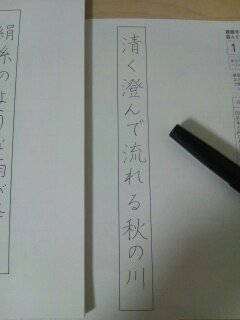 清く澄んで流れる秋の川
絹糸のような雨が